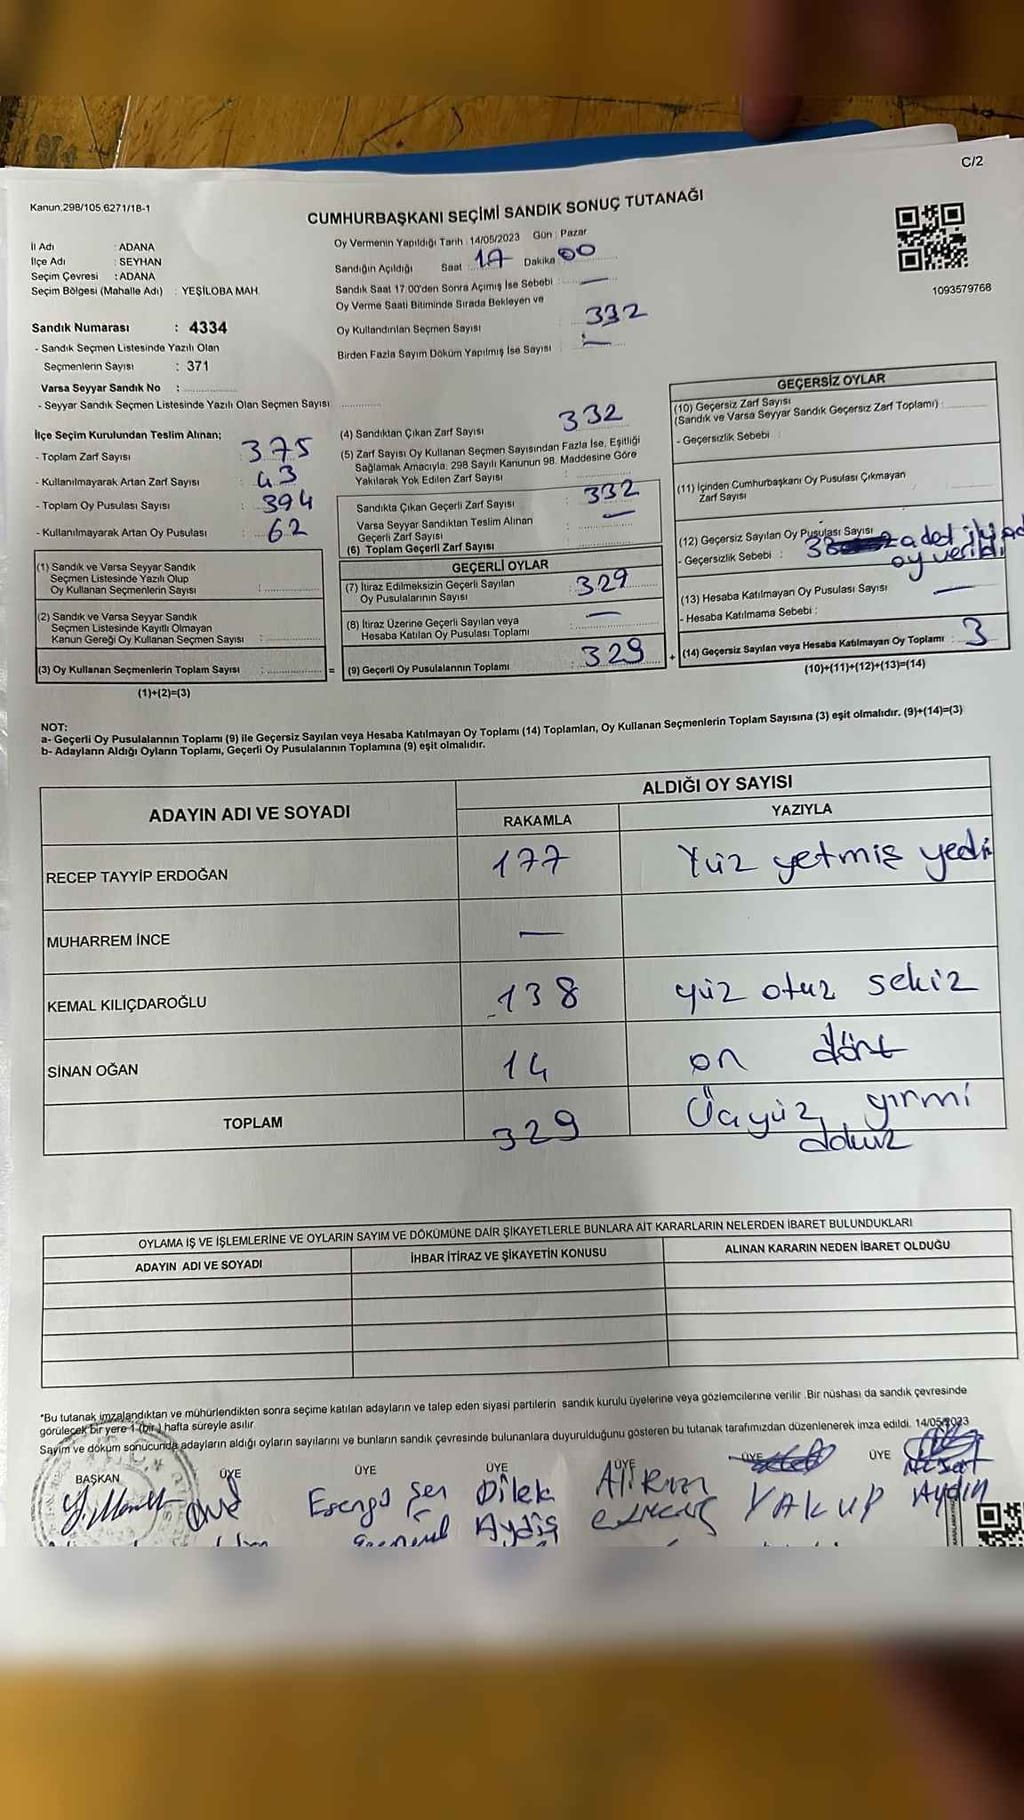 C/2
Kanun:298/105.6271/18-1
CUMHURBAŞKANI SEÇİMİ SANDIK SONUÇ TUTANAĞI
İl Adı : ADANA
İlçe Adı : SEYHAN
Seçim Çevresi : ADANA
Seçim Bölgesi (Mahalle Adı) : YEŞİLOBA MAH.
Sandık Numarası : 4334
- Sandık Seçmen Listesinde Yazılı Olan
Seçmenlerin Sayısı : 371
Varsa Seyyar Sandık No :
- Seyyar Sandık Seçmen Listesinde Yazılı Olan Seçmen Sayısı
Oy Vermenin Yapıldığı Tarih : 14/05/2023 Gün : Pazar
Sandığın Açıldığı Saat 17 Dakika 00
Sandık Saat 17.00'den Sonra Açımış İse Sebebi : —
Oy Verme Saati Bitiminde Sırada Bekleyen ve
Oy Kullandırılan Seçmen Sayısı 332
Birden Fazla Sayım Döküm Yapılmış İse Sayısı : —
1093579768
İlçe Seçim Kurulundan Teslim Alınan;
- Toplam Zarf Sayısı : 375
- Kullanılmayarak Artan Zarf Sayısı : 43
- Toplam Oy Pusulası Sayısı : 394
- Kullanılmayarak Artan Oy Pusulası : 62
(1) Sandık ve Varsa Seyyar Sandık
Seçmen Listesinde Yazılı Olup
Oy Kullanan Seçmenlerin Sayısı :
(2) Sandık ve Varsa Seyyar Sandık
Seçmen Listesinde Kayıtlı Olmayan
Kanun Gereği Oy Kullanan Seçmen Sayısı :
(3) Oy Kullanan Seçmenlerin Toplam Sayısı : =
(1)+(2)=(3)
(4) Sandıktan Çıkan Zarf Sayısı 332
(5) Zarf Sayısı Oy Kullanan Seçmen Sayısından Fazla İse, Eşitliği
Sağlamak Amacıyla, 298 Sayılı Kanunun 98. Maddesine Göre
Yakılarak Yok Edilen Zarf Sayısı :
Sandıkta Çıkan Geçerli Zarf Sayısı : 332
Varsa Seyyar Sandıktan Teslim Alınan
Geçerli Zarf Sayısı : —
(6) Toplam Geçerli Zarf Sayısı :
GEÇERLİ OYLAR
(7) İtiraz Edilmeksizin Geçerli Sayılan
Oy Pusulalarının Sayısı : 329
(8) İtiraz Üzerine Geçerli Sayılan veya
Hesaba Katılan Oy Pusulası Toplamı : —
(9) Geçerli Oy Pusulalarının Toplamı : 329 +
GEÇERSİZ OYLAR
(10) Geçersiz Zarf Sayısı
(Sandık ve Varsa Seyyar Sandık Geçersiz Zarf Toplamı) :
- Geçersizlik Sebebi :
(11) İçinden Cumhurbaşkanı Oy Pusulası Çıkmayan
Zarf Sayısı
(12) Geçersiz Sayılan Oy Pusulası Sayısı
- Geçersizlik Sebebi : adet
oy verildi
(13) Hesaba Katılmayan Oy Pusulası Sayısı —
- Hesaba Katılmama Sebebi :
(14) Geçersiz Sayılan veya Hesaba Katılmayan Oy Toplamı : 3
(10)+(11)+(12)+(13)=(14)
NOT:
a- Geçerli Oy Pusulalarının Toplamı (9) ile Geçersiz Sayılan veya Hesaba Katılmayan Oy Toplamı (14) Toplamları, Oy Kullanan Seçmenlerin Toplam Sayısına (3) eşit olmalıdır. (9)+(14)=(3)
b- Adayların Aldığı Oyların Toplamı, Geçerli Oy Pusulalarının Toplamına (9) eşit olmalıdır.
ADAYIN ADI VE SOYADI
ALDIĞI OY SAYISI
RAKAMLA YAZIYLA
RECEP TAYYİP ERDOĞAN 177 Yüz yetmiş yedi
MUHARREM İNCE —
KEMAL KILIÇDAROĞLU 138 yüz otuz sekiz
SİNAN OĞAN 14 on dört
TOPLAM 329 Üçyüz yirmi
dokuz
OYLAMA İŞ VE İŞLEMLERİNE VE OYLARIN SAYIM VE DÖKÜMÜNE DAİR ŞİKAYETLERLE BUNLARA AİT KARARLARIN NELERDEN İBARET BULUNDUKLARI
ADAYIN ADI VE SOYADI İHBAR İTİRAZ VE ŞİKAYETİN KONUSU ALINAN KARARIN NEDEN İBARET OLDUĞU
*Bu tutanak imzalandıktan ve mühürlendikten sonra seçime katılan adayların ve talep eden siyasi partilerin sandık kurulu üyelerine veya gözlemcilerine verilir .Bir nüshası da sandık çevresinde
görülecek bir yere 1 (bir) hafta süreyle asılır.
Sayım ve döküm sonucunda adayların aldığı oyların sayılarını ve bunların sandık çevresinde bulunanlara duyurulduğunu gösteren bu tutanak tarafımızdan düzenlenerek imza edildi. 14/05/2023
BAŞKAN ÜYE ÜYE ÜYE ÜYE ÜYE ÜYE
Esengül Şen Dilek Ali Rıza YAKUP
Aydış Aydın